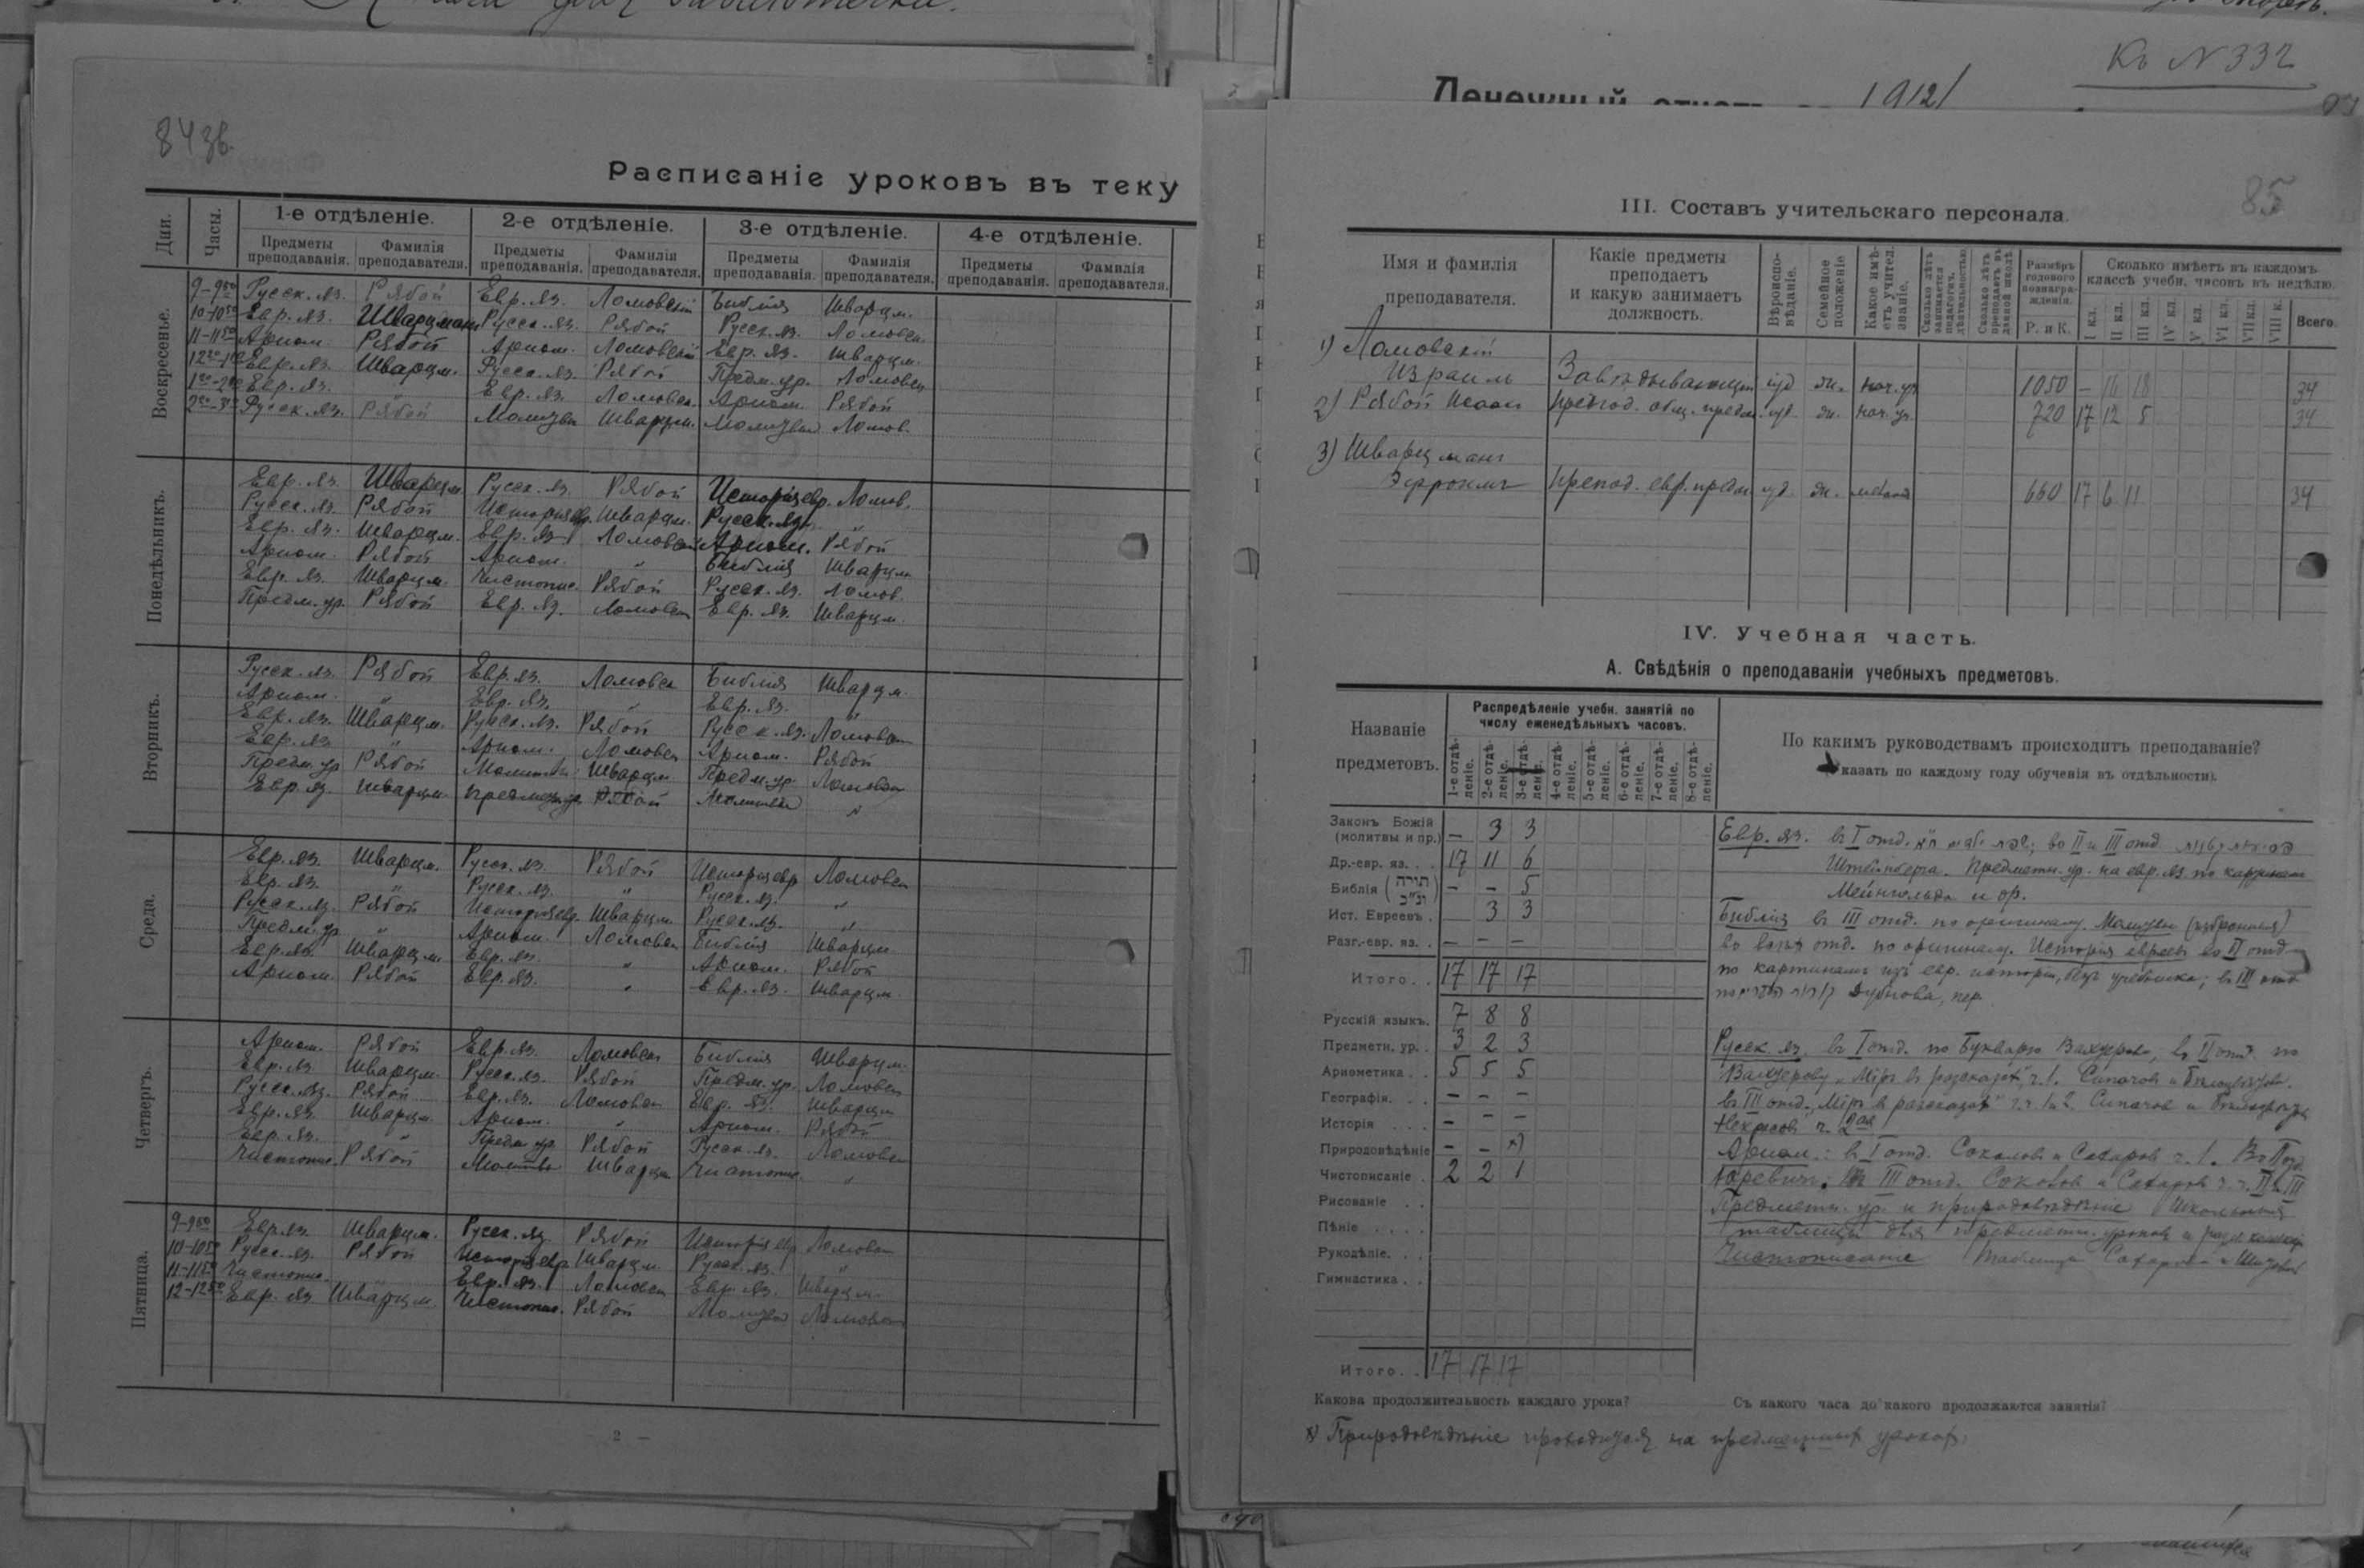 843в.
Расписаніе уроковъ въ теку
Дни. Часы. 1-е отдѣленіе. 2-е отдѣленіе. 3-е отдѣленіе. 4-е отдѣленіе.
Предметы преподаванія. Фамилія преподавателя. Предметы преподаванія. Фамилія преподавателя. Предметы преподаванія. Фамилія преподавателя. Предметы преподаванія. Фамилія преподавателя.
Воскресенье.
9-9 50 Русск. яз. Рябой Евр. яз. Ломовскій Библія Шварцм.
10-10 50 Евр. яз. Шварцман Русск. яз. Рябой Русск. яз. Ломовск.
11-11 50 Ариѳм. Рябой Арифм. Ломовскій Евр. яз. Шварцм.
Евр. яз. Шварцм. Русск. яз. Рябой Предм. ур. Ломовск
Евр. яз. " Евр. яз. Ломовск. Арифм. Рябой
Русск. яз. Рябой Молитвы Шварцм. Молитвы Ломов.
Понедѣльникъ.
Евр. яз. Шварцм. Русск. яз. Рябой Исторія евр. Ломов.
Русск. яз. Рябой Исторія евр. Шварцм. Русск. яз. "
Евр. яз. Шварцм. Евр. яз. Ломовск Арифм. Рябой
Арифм. Рябой Арифм. " Библія Шварцм.
Евр. яз. Шварцм. Чистопис. Рябой Русск. яз. Ломов.
Предм. ур. Рябой Евр. яз. Ломовск Евр. яз. Шварцм.
Вторникъ.
Русск. яз. Рябой Евр. яз. Ломовск Библія Шварцм.
Арифм. " Евр. яз. " Евр. яз. "
Евр. яз. Шварцм. Русск. яз. Рябой Русск. яз. Ломовск
Евр. яз. " Арифм. Ломовск Арифм. Рябой
Предм. ур Рябой Молитвы Шварцм Предм. ур. Ломовск
Евр яз Шварцм. Предмет. ур. Рябой Молитвы "
Среда.
Евр. яз. Шварцм. Русск. яз. Рябой Исторія евр Ломовск
Евр. яз. " Русск. яз. " Русск. яз. "
Русск. яз. Рябой Исторія евр. Шварцм. Русск. яз. "
Предм. ур " Арифм. Ломовск Библія Шварцм
Евр. яз. Шварцм. Евр. яз. " Арифм. Рябой
Арифм. Рябой Евр. яз. " Евр. яз. Шварцм.
Четвергъ.
Арифм. Рябой Евр. яз. Ломовск Библія Шварцм.
Евр. яз Шварцм. Русск. яз. Рябой Предм. ур. Ломовск
Русск. яз. Рябой Евр. яз. Ломовск Евр. яз. Шварцм
Евр. яз. Шварцм. Арифм. " Арифм. Рябой
Евр. яз. " Предм. ур. Рябой Русск. яз. Ломовск
Чистопис. Рябой Молитвы Шварцм Чистопис. "
Пятница.
9-9 50 Евр. яз. Шварцм. Русск. яз. Рябой Исторія евр Ломовск
10-10 50 Русск. яз. Рябой Исторія евр. Шварцм. Русск. яз. "
11-11 50 Чистопис. " Евр. яз. Ломовск Евр. яз. Шварцм.
12-12 50 Евр. яз Шварцм. Чистопис. Рябой Молитвы Ломовск
2 —
Къ N 332
Денежный отчетъ 1912
85
III. Составъ учительскаго персонала.
Имя и фамилія преподавателя. Какіе предметы преподаетъ и какую занимаетъ должность. Вѣроиспо-вѣданіе. Семейное положеніе Какое имѣ-етъ учител. званіе. Сколько лѣтъ занимается педагогич. дѣятельностью Сколько лѣтъ преподаетъ въ данной школѣ Размѣръ годового вознагра-жденія. Сколько имѣетъ въ каждомъ классѣ учебн. часовъ въ недѣлю.
Р. и К. I кл. II кл. III кл. IV кл. V кл. VI кл. VII кл. VIII к. Всего.
1) Ломовскій
Израиль Завѣдывающій іуд. ж. нач. уч. 1050 — 16 18 34
2) Рябой Исаакъ препод. общ. предм. іуд. ж. нач. уч. 720 17 12 5 34
3) Шварцманъ
Эфроимъ препод. евр. предм. іуд. ж. 660 17 6 11 34
IV. Учебная часть.
А. Свѣдѣнія о преподаваніи учебныхъ предметовъ.
Названіе предметовъ. Распредѣленіе учебн. занятій по числу еженедѣльныхъ часовъ. По какимъ руководствамъ происходитъ преподаваніе?
казать по каждому году обученія въ отдѣльности).
1-е отдѣ-леніе. 2-е отдѣ-леніе. 3-е отдѣ-леніе. 4-е отдѣ-леніе. 5-е отдѣ-леніе. 6-е отдѣ-леніе. 7-е отдѣ-леніе. 8-е отдѣ-леніе.
Законъ Божій (молитвы и пр.) — 3 3
Др.-евр. яз. . . 17 11 6
Библія (תורה ונ״כ) — — 5
Ист. Евреевъ . 3 3
Разг.-евр. яз. . — — —
Итого. . 17 17 17
Русскій языкъ. 7 8 8
Предметн. ур. . 3 2 3
Ариѳметика . . 5 5 5
Географія. . . — — —
Исторія . . . — — —
Природовѣдѣніе — — x)
Чистописаніе . 2 2 1
Рисованіе . .
Пѣніе . . . .
Рукодѣліе. . .
Гимнастика . .
Итого. . 17 17 17
Евр. яз. въ I отд. во II и III отд.
Штейнберга. Предметн. ур. на евр. яз. по картинам
Мейнгольда и др.
Библія въ III отд. по оригиналу. Молитвы (избранныя)
во всѣхъ отд. по оригиналу. Исторія евреевъ во II отд.
по картинамъ изъ евр. исторіи, безъ учебника; въ III отд.
по Дубнова, пер.
Русск. яз. въ I отд. по Букварю Вахтерова, въ II отд. по
Вахтерову „Міръ въ разсказахъ" ч. 1.
въ III отд. „Міръ в разсказахъ" ч. ч. 1 и 2.
Некрасовъ ч. 2ая
Арифм.: въ I отд. Соколовъ и Сахаровъ ч. 1. Въ II отд
Юревичъ. Въ III отд. Соколов и Сахаров ч. ч. II и III
Предметн. ур. и природовѣдѣніе Школьныя
таблицы для предметн. уроковъ и
Чистописаніе
Какова продолжительность каждаго урока? Съ какого часа до какого продолжаются занятія?
x) Природовѣдѣніе проводится на предметных уроках.